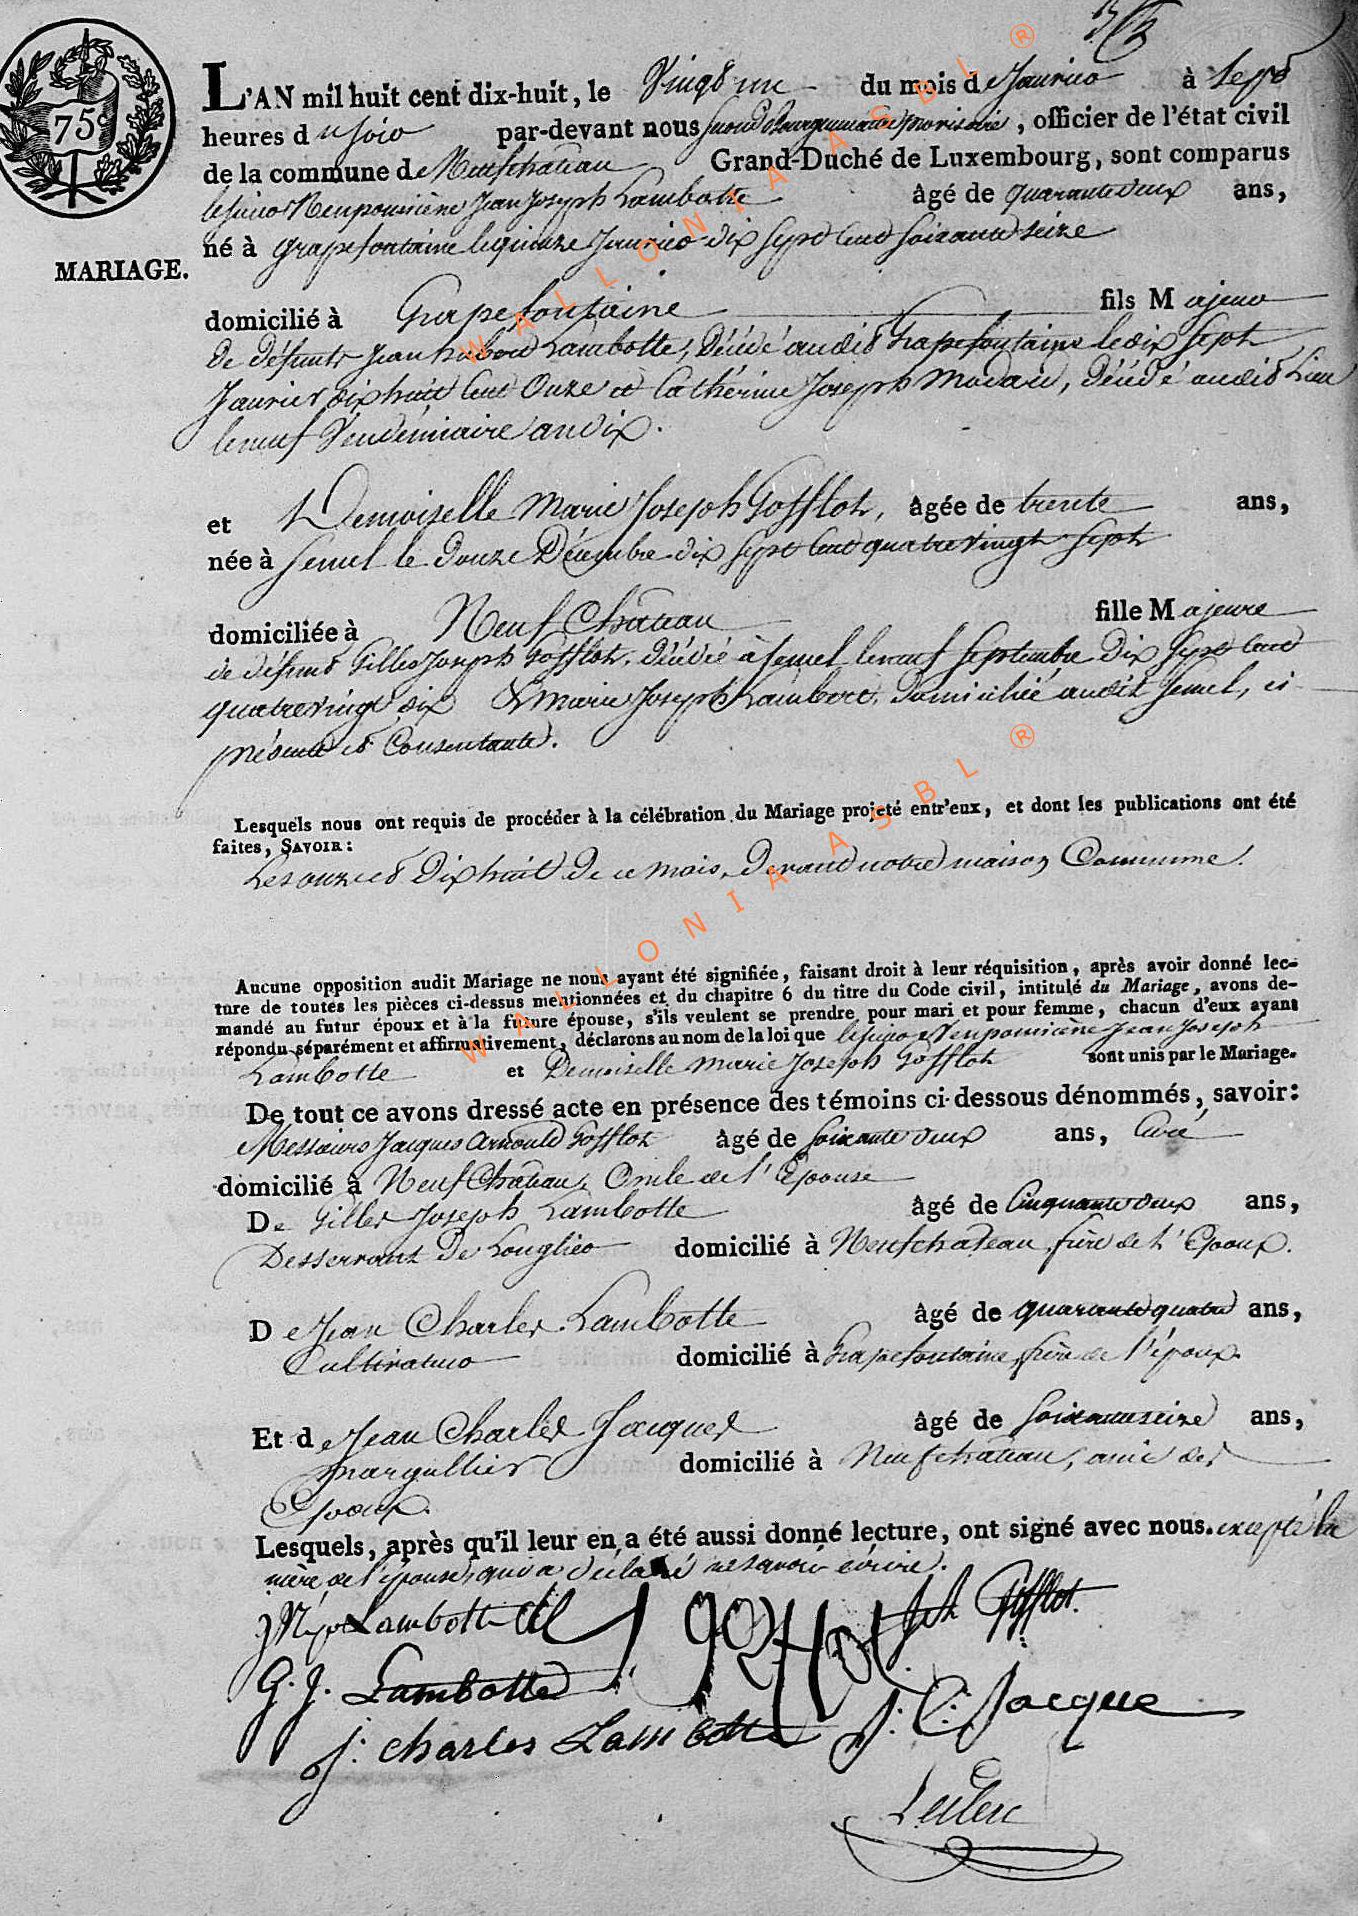 75c
L'AN mil huit cent dix-huit, le Vingt un du mois de Janvier à Sept
heures du Soir par-devant nous Second Bourguemaitre provisoire, officier de l'état civil
de la commune de Neufchâteau Grand-Duché de Luxembourg, sont comparus
le sieur Jean Joseph Lambotte âgé de quarante deux ans,
MARIAGE.
né à grapefontaine le quinze Janvier dix sept cent soixante seize
domicilié à Grapefontaine fils Majeur
de défunts Jean Lambotte, décédé audit Grapefontaine le dix Sept
Janvier dix huit Cent Onze et Cathérine Joseph décédé audit Lieu
le neuf Vendémiaire an dix.
et Demoiselle Marie Joseph Gofflot, âgée de trente ans,
née à Semel le douze Décembre dix Sept Cent quatrevingt Sept
domiciliée à Neufchâteau fille Majeure
de défunt Gilles Joseph Gofflot, décédé à Semel le neuf Septembre Dix Sept Cent
quatrevingt dix & Marie Joseph Lambert, domiciliée audit Semel, ci
présente et Consentante.
Lesquels nous ont requis de procéder à la célébration du Mariage projeté entr'eux, et dont les publications ont été
faites, SAVOIR:
Les onze et Dix huit de ce mois, Devant notre maison Commune.
Aucune opposition audit Mariage ne nous ayant été signifiée, faisant droit à leur réquisition, après avoir donné lec-
ture de toutes les pièces ci-dessus mentionnées et du chapitre 6 du titre du Code civil, intitulé du Mariage, avons de-
mandé au futur époux et à la future épouse, s'ils veulent se prendre pour mari et pour femme, chacun d'eux ayant
répondu séparément et affirmativement, déclarons au nom de la loi que le sieur Jean Joseph
Lambotte et Demoiselle Marie Joseph Gofflot sont unis par le Mariage.
De tout ce avons dressé acte en présence des témoins ci-dessous dénommés, savoir:
Messieurs Jacques Arnould Gofflot âgé de Soixante deux ans, Curé
domicilié à Neufchâteau, Oncle de l'Epouse
De Gilles Joseph Lambotte âgé de Cinquante deux ans,
Desservant de Longlier domicilié à Neufchateau, frère de l'Epoux.
De Jean Charles Lambotte âgé de quarante quatre ans,
Cultivateur domicilié à Grapefontaine, frère de l'époux.
Et de Jean Charles Jacques âgé de Soixante seize ans,
marguillier domicilié à Neufchateau, ami des
Epoux.
Lesquels, après qu'il leur en a été aussi donné lecture, ont signé avec nous. excepté la
mère de l'épouse, qui a déclaré ne savoir écrire.
Lambotte Gofflot.
G. J. Lambotte
J: C: Jacque
j: charles Lambotte
Leclerc
WALLONIA ASBL ®
WALLONIA ASBL ®